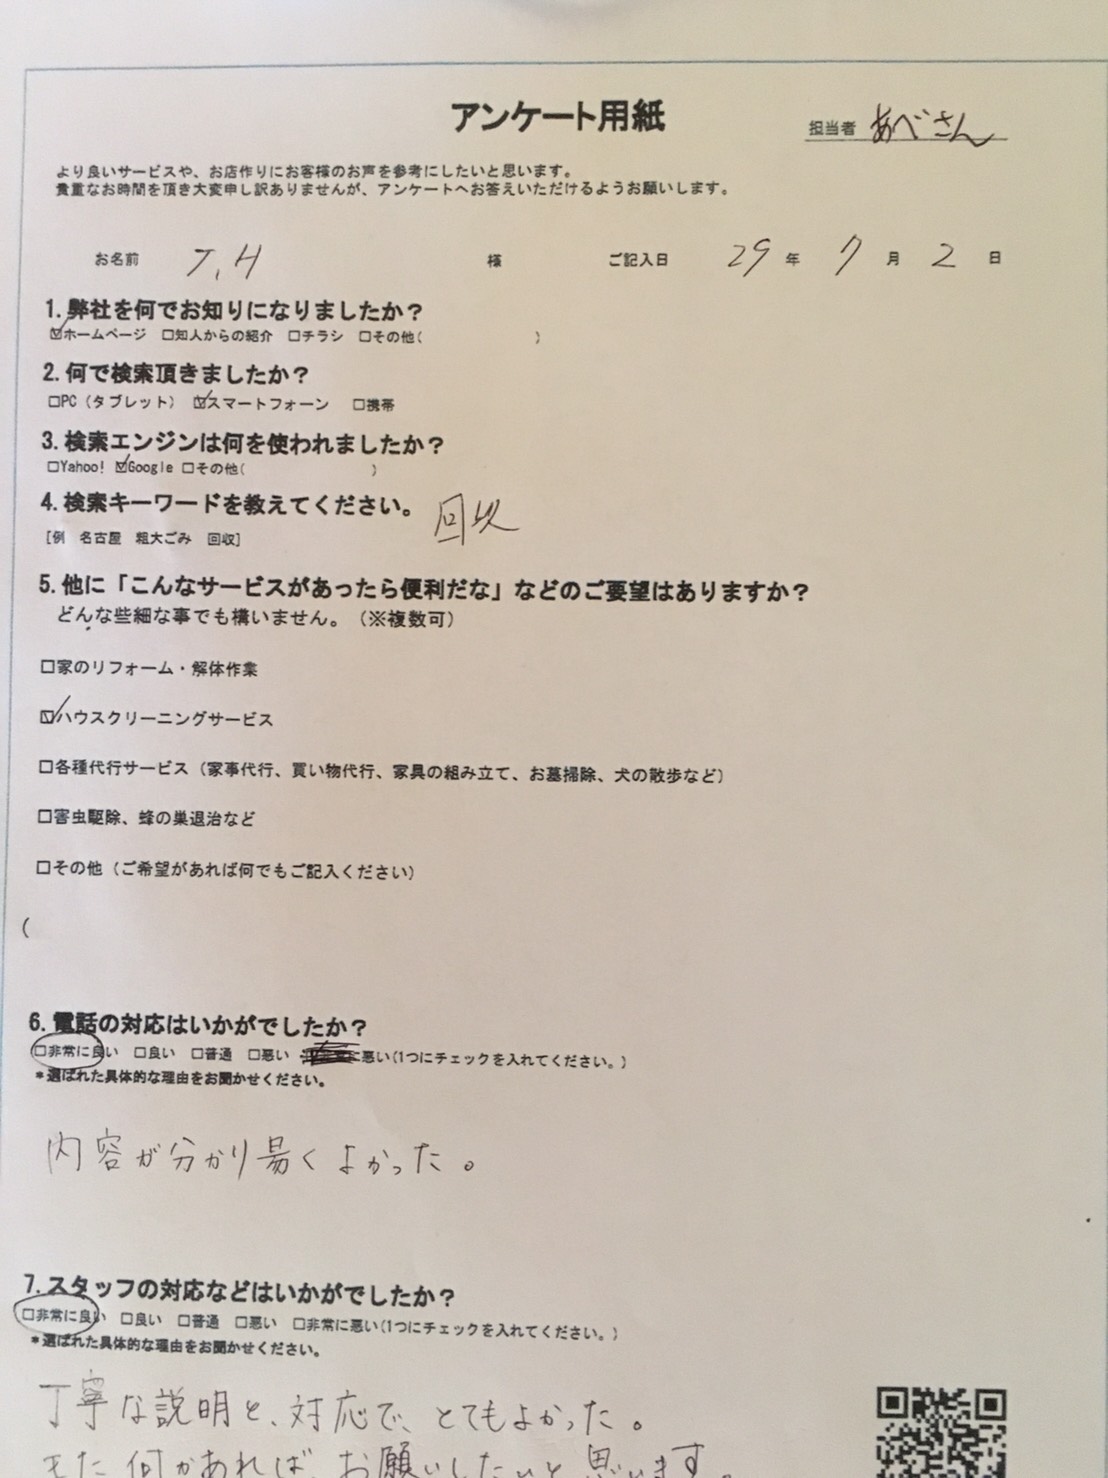 アンケート用紙
担当者 あべさん
より良いサービスや、お店作りにお客様のお声を参考にしたいと思います。
貴重なお時間を頂き大変申し訳ありませんが、アンケートへお答えいただけるようお願いします。
お名前 T.H 様 ご記入日 29 年 7 月 2 日
1. 弊社を何でお知りになりましたか？
☑ホームページ □知人からの紹介 □チラシ □その他( )
2. 何で検索頂きましたか？
□PC（タブレット） ☑スマートフォーン □携帯
3. 検索エンジンは何を使われましたか？
□Yahoo! ☑Google □その他( )
4. 検索キーワードを教えてください。 回収
[例 名古屋 粗大ごみ 回収]
5. 他に「こんなサービスがあったら便利だな」などのご要望はありますか？
どんな些細な事でも構いません。（※複数可）
□家のリフォーム・解体作業
☑ハウスクリーニングサービス
□各種代行サービス（家事代行、買い物代行、家具の組み立て、お墓掃除、犬の散歩など）
□害虫駆除、蜂の巣退治など
□その他（ご希望があれば何でもご記入ください）
(
6. 電話の対応はいかがでしたか？
□非常に良い □良い □普通 □悪い 悪い(1つにチェックを入れてください。)
*選ばれた具体的な理由をお聞かせください。
内容が分かり易くよかった。
7. スタッフの対応などはいかがでしたか？
□非常に良い □良い □普通 □悪い □非常に悪い(1つにチェックを入れてください。)
*選ばれた具体的な理由をお聞かせください。
丁寧な説明と、対応で、とてもよかった。
また何かあれば、お願いしたいと思います。